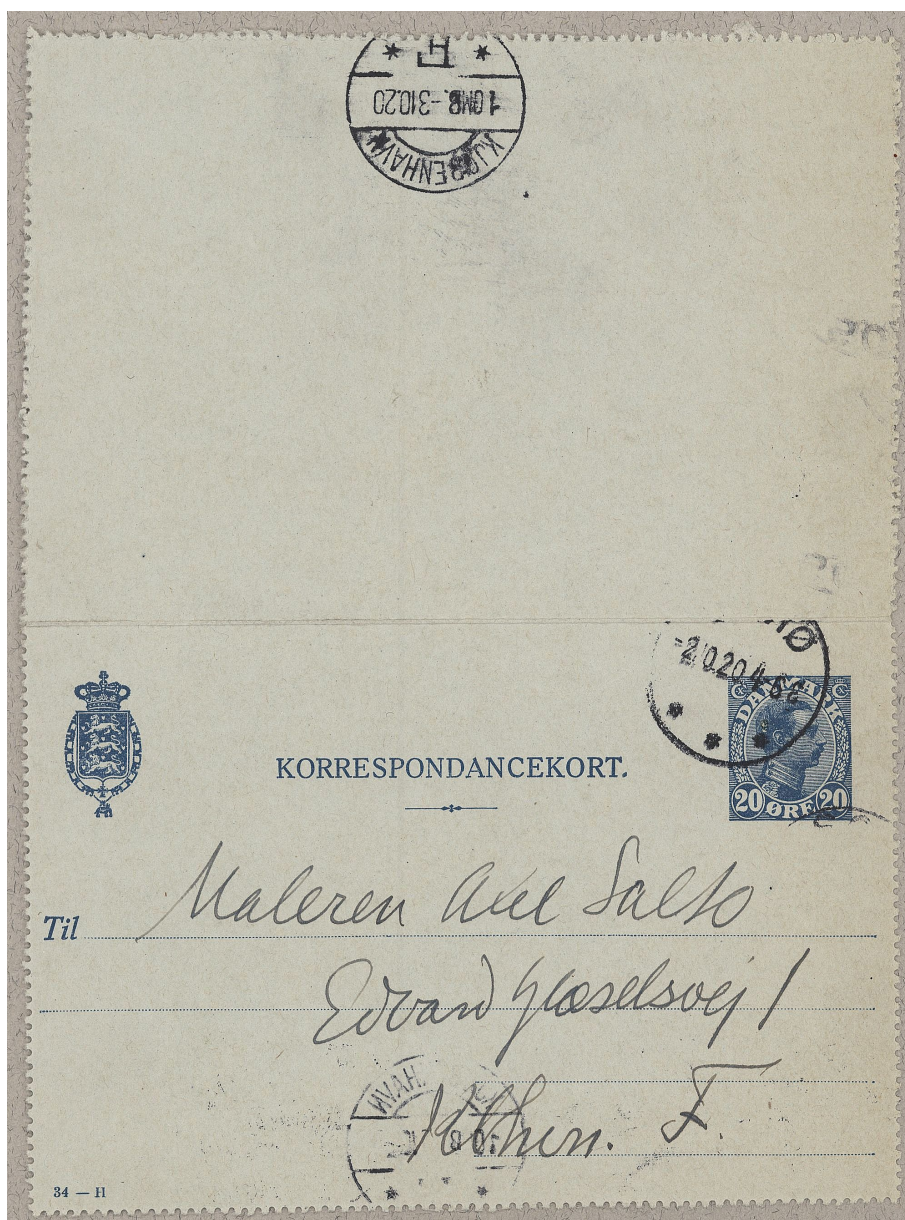 KJØBENHAVN
10MB. -310.20
F
-2.10.20 4-5 E
DANMARK
20 ØRE 20
KORRESPONDANCEKORT.
Til Maleren Axel Salto
Edvard Glæselsvej 1
Kbhvn. F.
34 — H